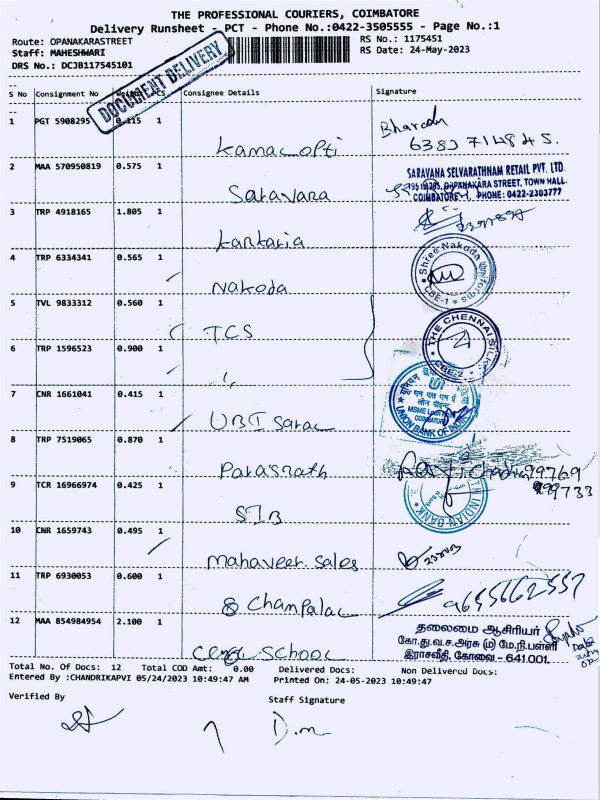 THE PROFESSIONAL COURIERS, COIMBATORE
Delivery Runsheet - PCT - Phone No.:0422-3505555 - Page No.:1
Route: OPANAKARASTREET
RS No.: 1175451
Staff: MAHESHWARI
RS Date: 24-May-2023
DRS No.: DCJB117545101
DOCUMENT DELIVERY
S No Consignment No Weight PCS Consignee Details Signature
1 PGT 5908295 0.115 1
Kamac opti
6383714845.
2 MAA 570950819 0.575 1
Saravana
SARAVANA SELVARATHNAM RETAIL PVT. LTD.
OPPANAKARA STREET, TOWN HALL.
COIMBATORE-1. PHONE: 0422-2303777
3 TRP 4918165 1.805 1
Kankaria
4 TRP 6334341 0.565 1
Nakoda
Shree Nakoda
CBE-1
5 TVL 9833312 0.560 1
TCS
THE CHENNAI SILKS
CBE-2
6 TRP 1596523 0.900 1
7 CNR 1661041 0.415 1
UBI Sarac
UNION BANK OF INDIA
8 TRP 7519065 0.870 1
Parasnath
99769
999733
9 TCR 16966974 0.425 1
SIB
INDIAN BANK
10 CNR 1659743 0.495 1
Mahaveer Sales
11 TRP 6930053 0.600 1
8 Champalac
9655662557
12 MAA 854984954 2.100 1
School
தலைமை ஆசிரியர்
கோ.து.வ.ச.அரசு (ம) மே.நி.பள்ளி
இராசவீதி, கோவை - 641.001.
Total No. Of Docs: 12 Total COD Amt: 0.00 Delivered Docs: Non Delivered Docs:
Entered By :CHANDRIKAPVI 05/24/2023 10:49:47 AM Printed On: 24-05-2023 10:49:47
Verified By
Staff Signature
D.m